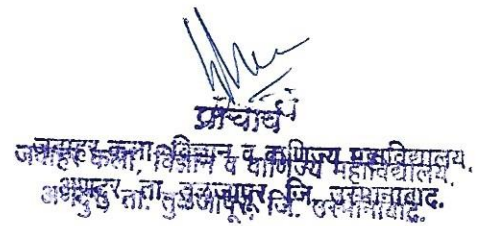 प्राचार्य
जवाहर कला, विज्ञान व वाणिज्य महाविद्यालय.
अणदुर ता. तुळजापूर, जि. उस्मानाबाद.